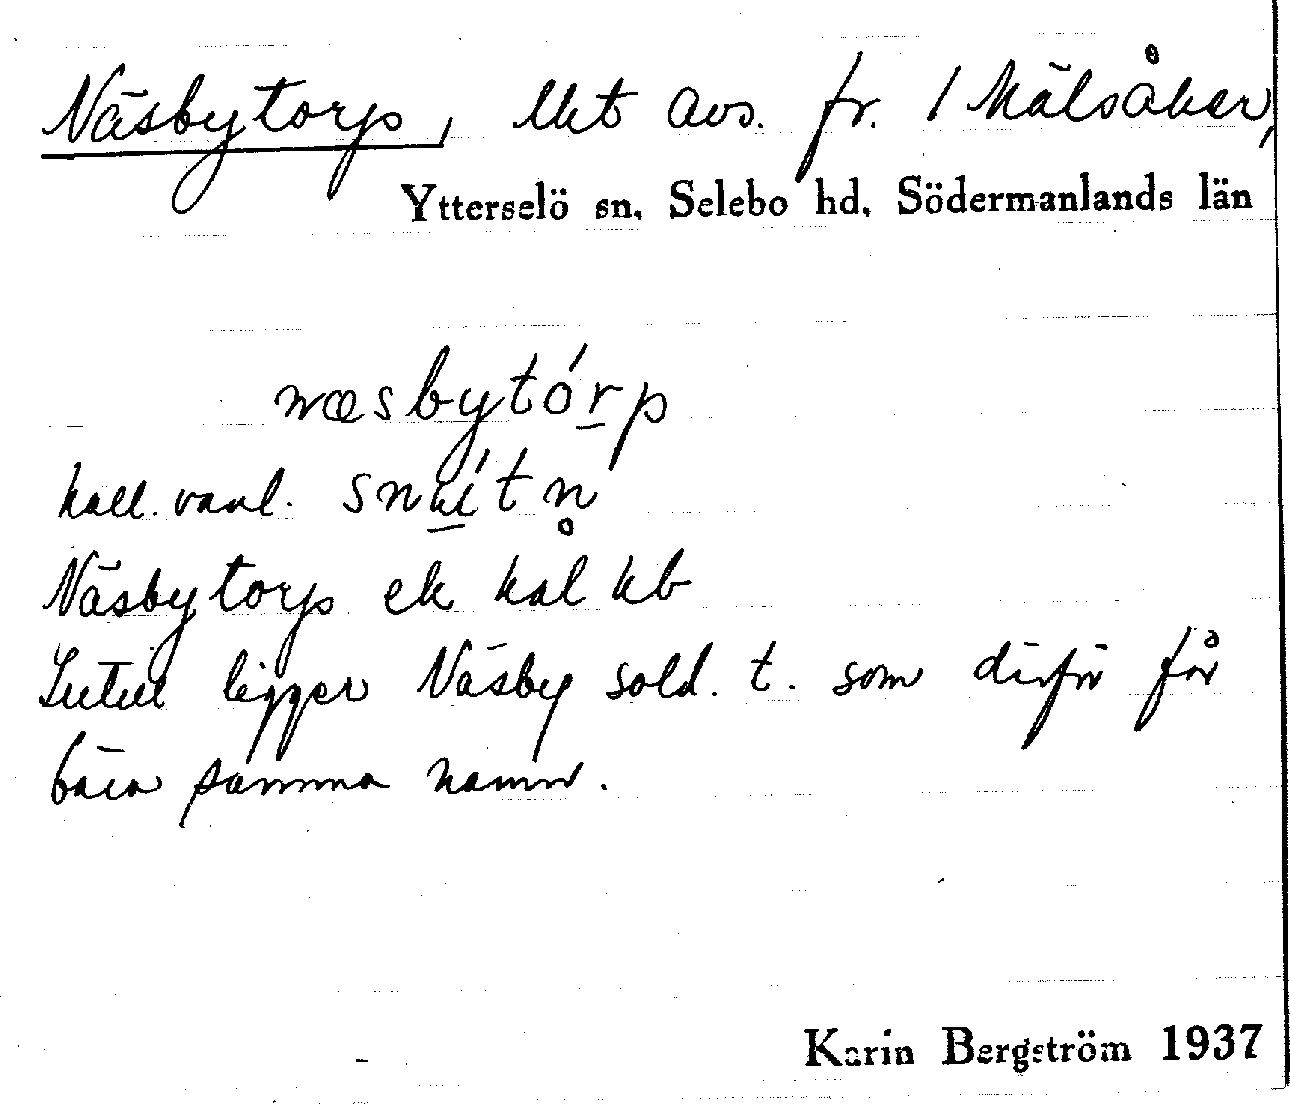 Näsbytorp, lht avs. fr. 1 Mälsåker,
Ytterselö sn. Selebo hd. Södermanlands län
næsbytórp
kall. vanl.
Näsbytorp ek kal kb
Intill ligger Näsby sold. t. som därför får
bära samma namn.
Karin Bergström 1937